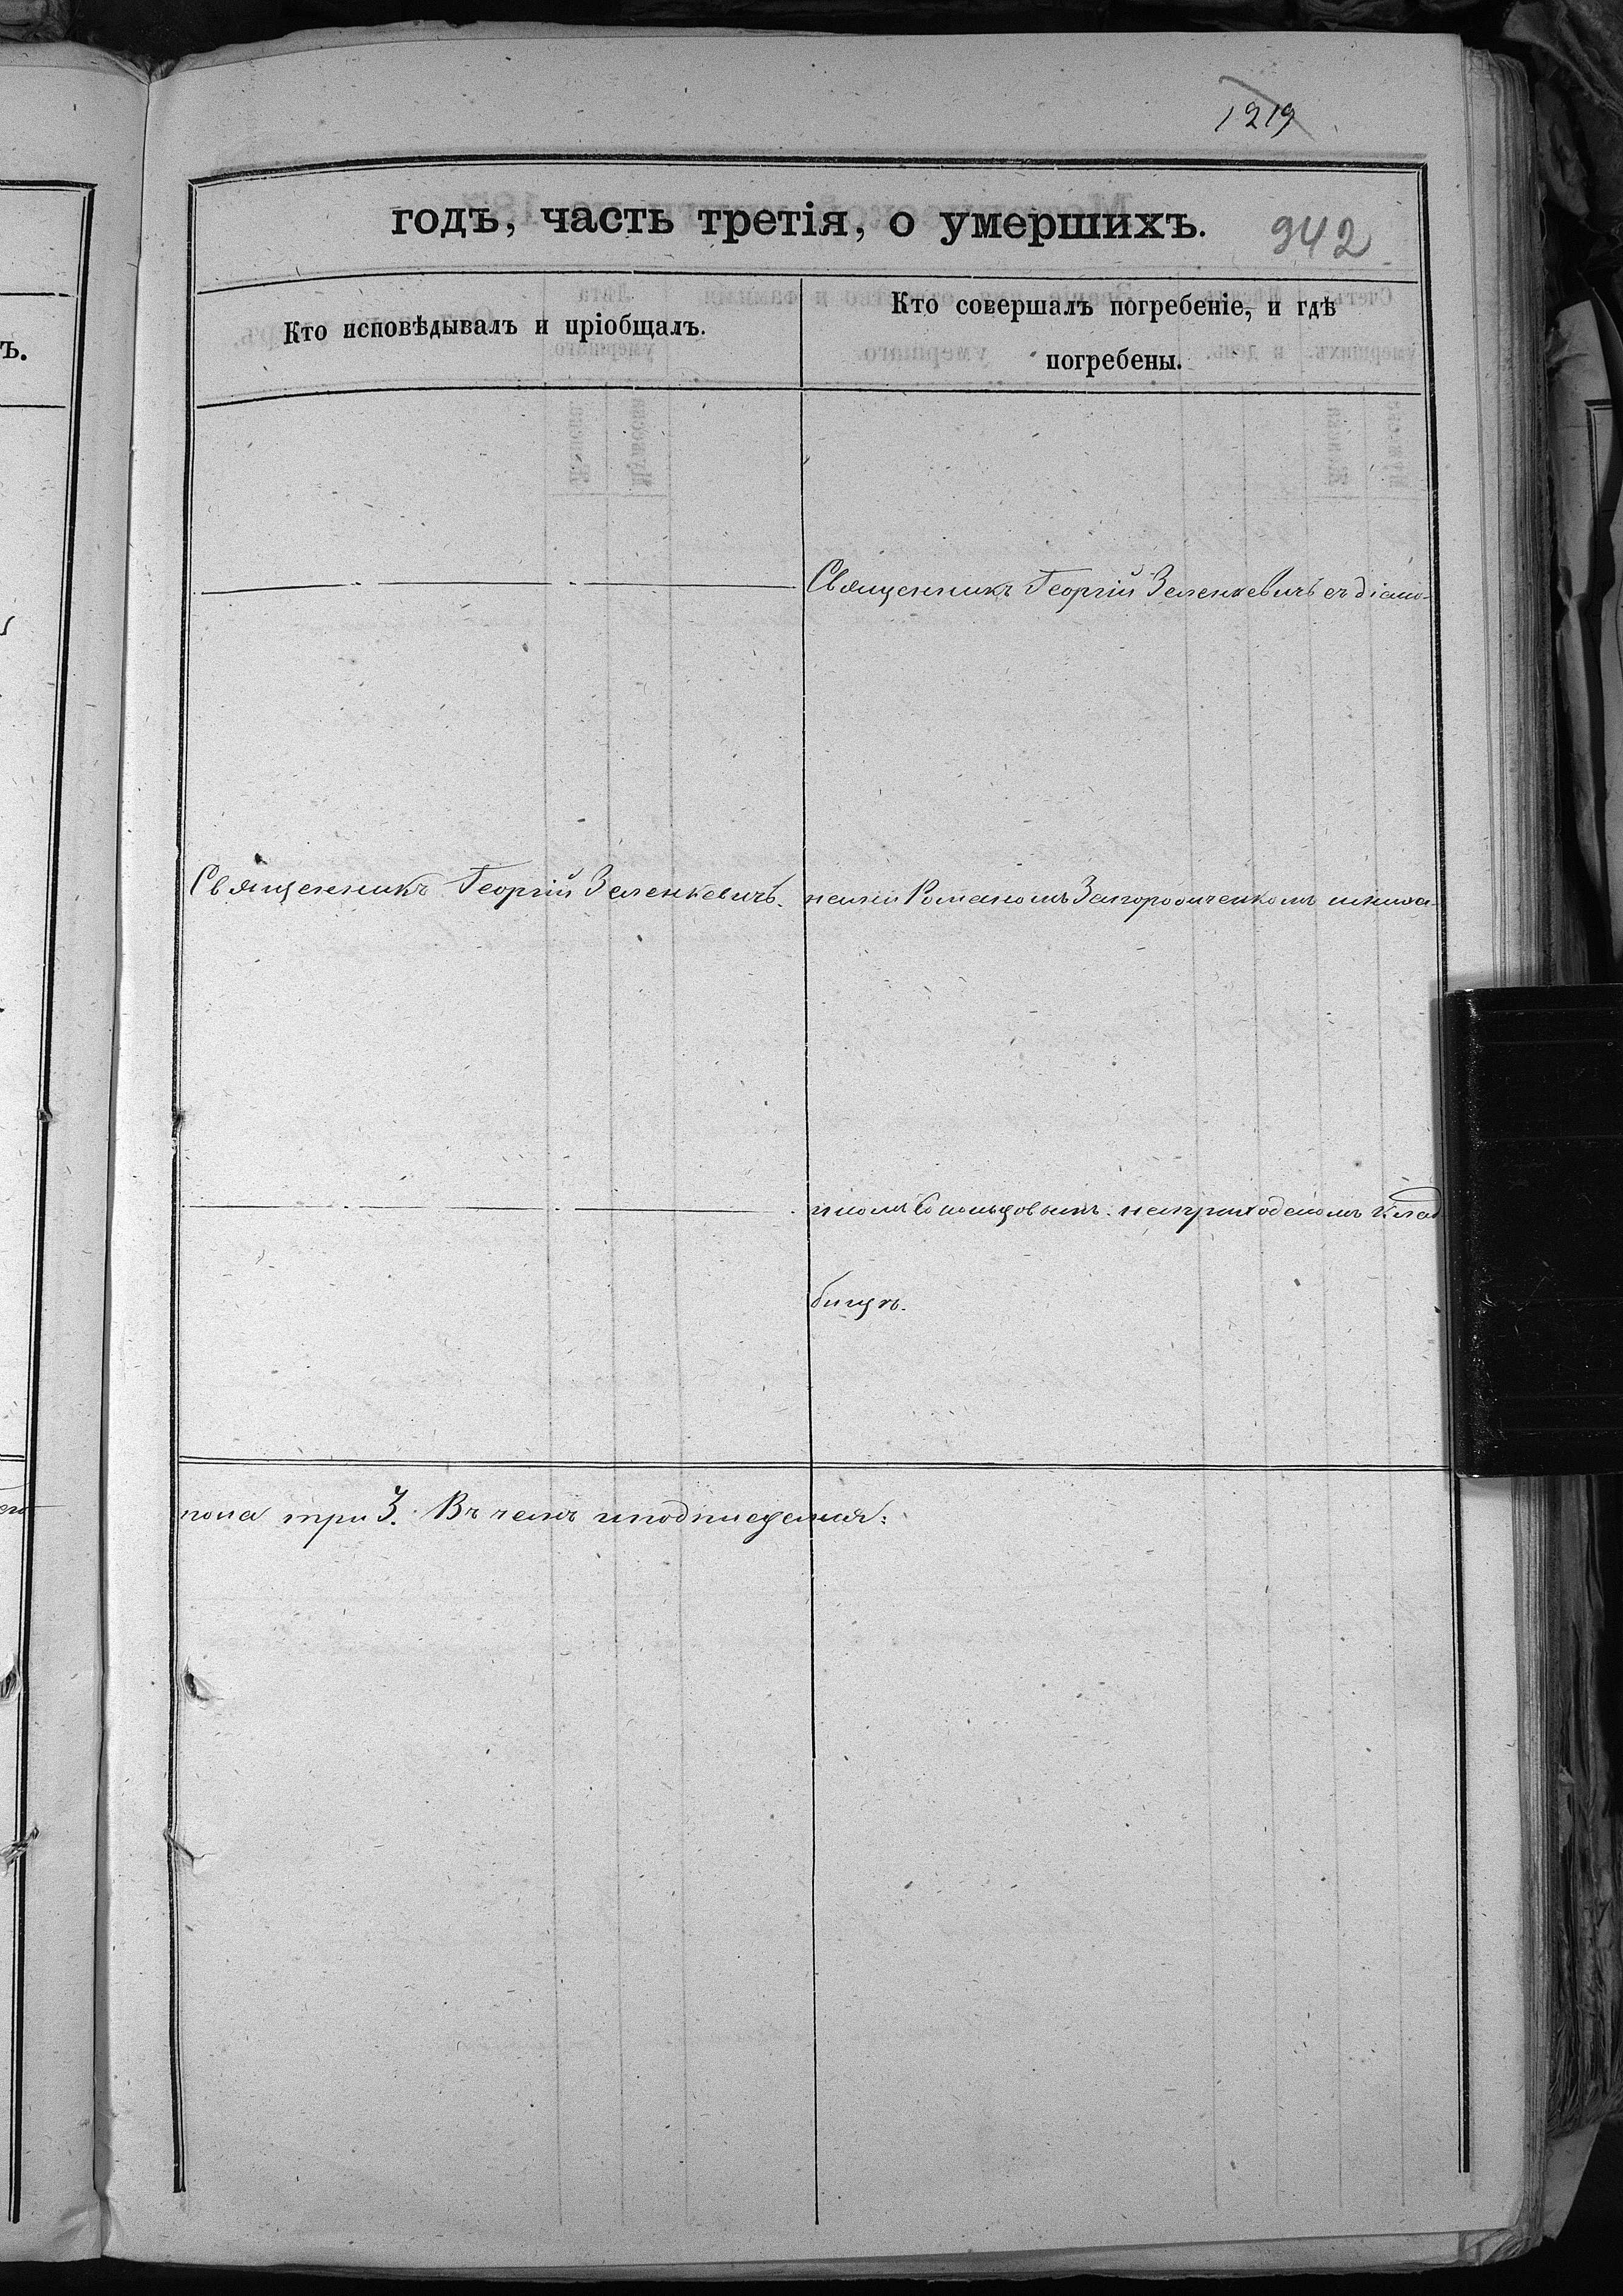 1219
годъ, часть третія, о умершихъ. 942
Кто исповѣдывалъ и пріобщалъ.
Кто совершалъ погребеніе, и гдѣ
погребены.
Священникъ Георгій Зеленкевичъ съ діако-
Священникъ Георгій Зеленкевичъ.
Романомъ
на приходскомъ клад
бищѣ.
пола три 3. Въ чемъ и подписуемся:
ъ.